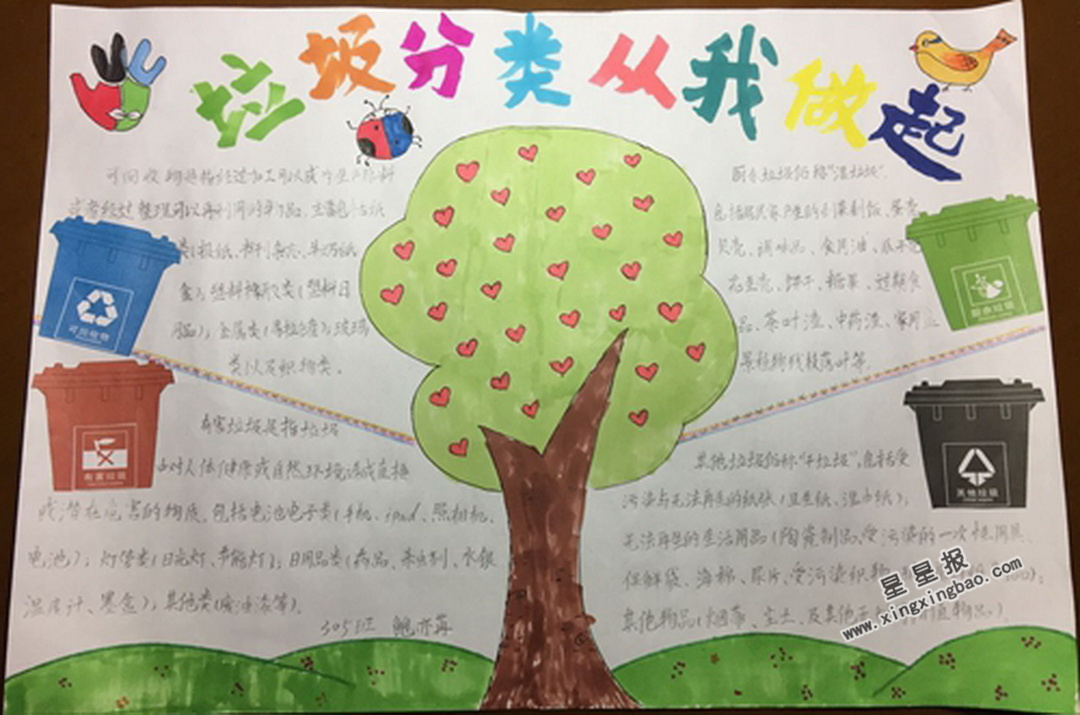 垃圾分类从我做起
可回收物是指经过加工可以成为生产原料
或者经过整理可以再利用的物品,主要包括纸
类(报纸、书刊杂志、
盒),塑料
用品),金属类(易拉罐),玻璃
类以及织物类。
可回收物
有害垃圾是指垃圾
中对人体健康或自然环境造成直接
或潜在危害的物质,包括电池电子类(手机、ipad、照相机、
电池);灯管类(日光灯、节能灯);日用品类(药品、杀虫剂、水银
温度计、墨盒);其他类(废油漆等)。
有害垃圾
305班 鲍亦
厨余垃圾俗称"湿垃圾".
包括居民家庭产生的剩菜剩饭、蛋壳
贝壳、调味品、食用油、瓜子壳
花生壳、饼干、糖果、过期食
品、茶叶渣、中药渣、家用盆
景植物残枝落叶等.
厨余垃圾
其他垃圾俗称"干垃圾",包括受
污染与无法再生的纸张(卫生纸、湿巾纸),
无法再生的生活用品(陶瓷制品,受污染的一次性用具、
保鲜袋、海棉、尿片、受污染织物
其他物品(烟蒂、尘土、及其他
其他垃圾
星星报
www.xingxingbao.com